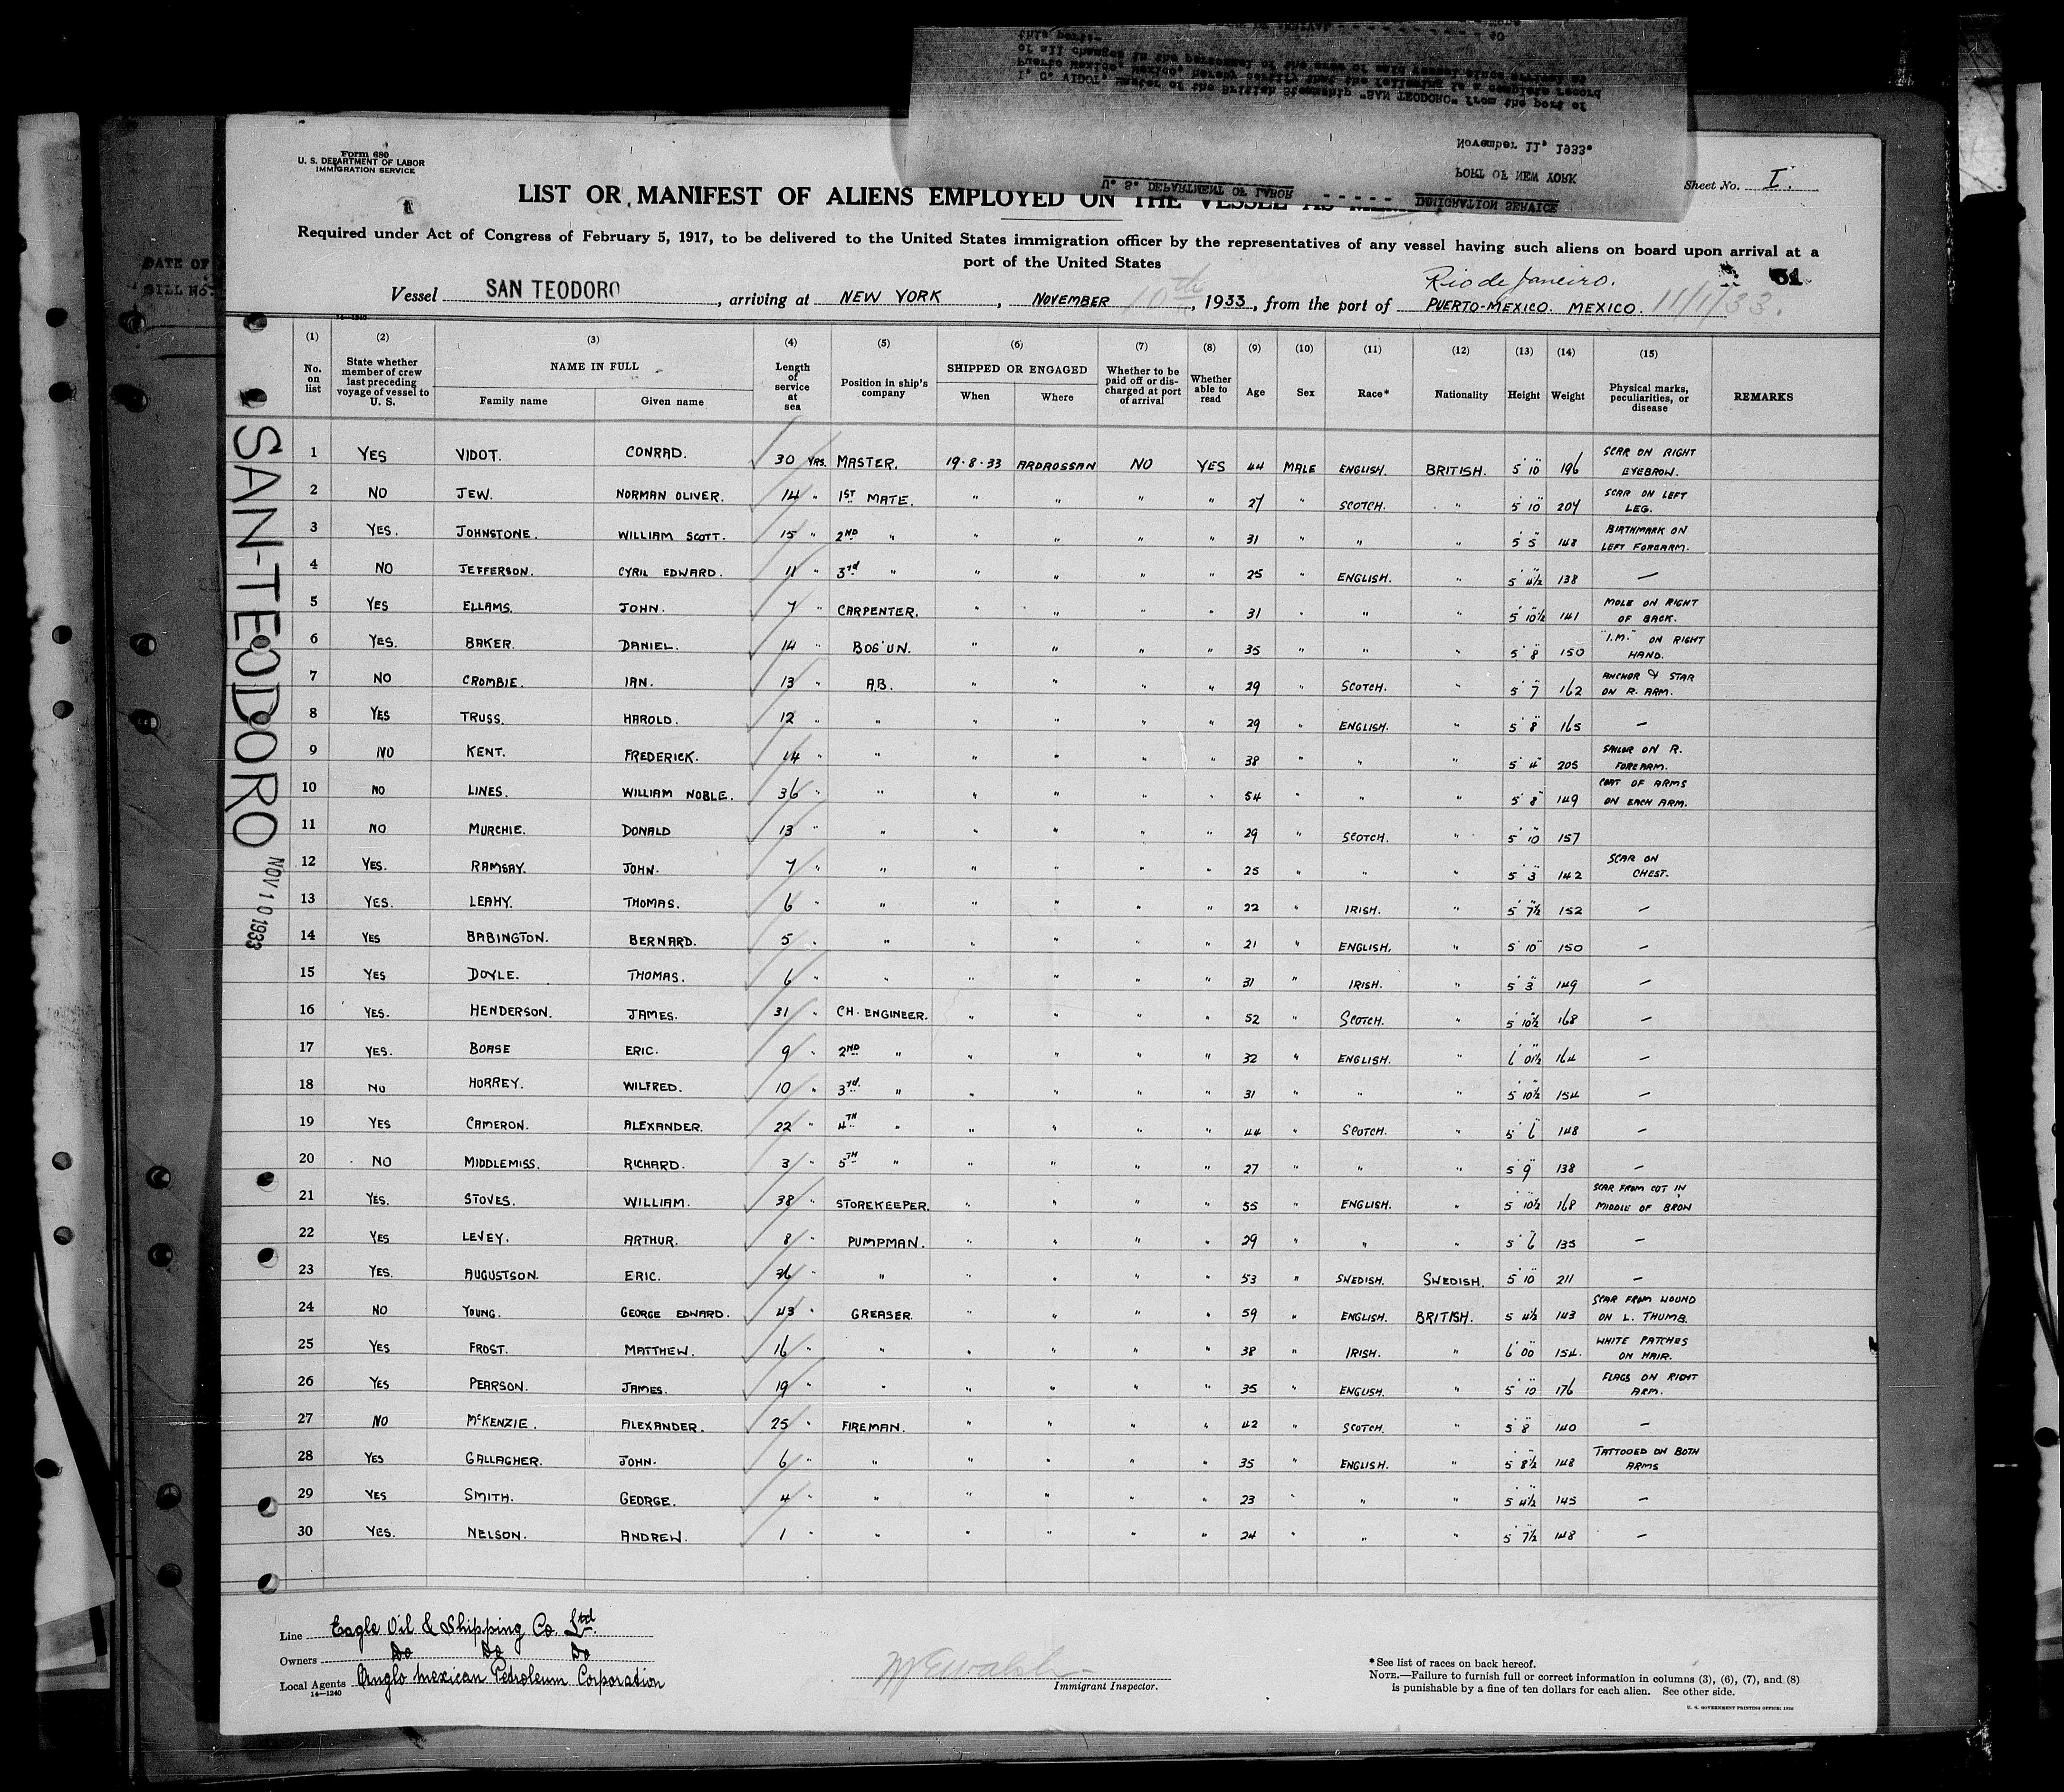 I, C. VIDOT, Master of the British Steamship "SAN TEODORO" from the port of
Puerto Mexico, Mexico, hereby certify that the following is a complete record
of all changes in the personnel of the crew of said vessel since arrival at
this port:-
November 11, 1933.
PORT OF NEW YORK
IMMIGRATION SERVICE
U. S. DEPARTMENT OF LABOR - - - - -
Form 680
U. S. DEPARTMENT OF LABOR
IMMIGRATION SERVICE
Sheet No. I.
LIST OR MANIFEST OF ALIENS EMPLOYED ON THE VESSEL AS
Required under Act of Congress of February 5, 1917, to be delivered to the United States immigration officer by the representatives of any vessel having such aliens on board upon arrival at a
port of the United States
DATE OF
BILL No.
Rio de Janeiro.
31
Vessel SAN TEODORO, arriving at NEW YORK, NOVEMBER 10th, 1933, from the port of PUERTO-MEXICO. MEXICO. 11/1/33.
(1) (2) (3) (4) (5) (6) (7) (8) (9) (10) (11) (12) (13) (14) (15)
No. on list State whether member of crew last preceding voyage of vessel to U. S. NAME IN FULL Family name Given name Length of service at sea Position in ship's company SHIPPED OR ENGAGED When Where Whether to be paid off or discharged at port of arrival Whether able to read Age Sex Race* Nationality Height Weight Physical marks, peculiarities, or disease REMARKS
SAN-TEODORO
NOV 10 1933
1 YES VIDOT. CONRAD. 30 YRS. MASTER. 19·8·33 ARDROSSAN NO YES 44 MALE ENGLISH. BRITISH. 5' 10" 196 SCAR ON RIGHT EYEBROW.
2 NO JEW. NORMAN OLIVER. 14 " 1ST MATE. " " " " 27 " SCOTCH. " 5' 10" 204 SCAR ON LEFT LEG.
3 YES. JOHNSTONE. WILLIAM SCOTT. 15 " 2ND " " " " " 31 " " " 5' 5" 148 BIRTHMARK ON LEFT FOREARM.
4 NO JEFFERSON. CYRIL EDWARD. 11 " 3rd " " " " " 25 " ENGLISH. " 5' 4½" 138 —
5 YES ELLAMS. JOHN. 7 " CARPENTER. " " " " 31 " " " 5' 10½" 141 MOLE ON RIGHT OF BACK.
6 YES. BAKER. DANIEL. 14 " BOS'UN. " " " " 35 " " " 5' 8" 150 "I.M." ON RIGHT HAND.
7 NO CROMBIE. IAN. 13 " A.B. " " " " 29 " SCOTCH. " 5' 7" 162 ANCHOR & STAR ON R. ARM.
8 YES TRUSS. HAROLD. 12 " " " " " " 29 " ENGLISH. " 5' 8" 165 —
9 NO KENT. FREDERICK. 14 " " " " " " 38 " " " 5' 4" 205 SAILOR ON R. FOREARM.
10 NO LINES. WILLIAM NOBLE. 36 " " " " " " 54 " " " 5' 8" 149 COAT OF ARMS ON EACH ARM.
11 NO MURCHIE. DONALD 13 " " " " " " 29 " SCOTCH. " 5' 10" 157
12 YES. RAMSAY. JOHN. 7 " " " " " " 25 " " " 5' 3" 142 SCAR ON CHEST.
13 YES. LEAHY. THOMAS. 6 " " " " " " 22 " IRISH. " 5' 7½" 152 —
14 YES BABINGTON. BERNARD. 5 " " " " " " 21 " ENGLISH. " 5' 10" 150 —
15 YES DOYLE. THOMAS. 6 " " " " " " 31 " IRISH. " 5' 3" 149 —
16 YES. HENDERSON. JAMES. 31 " CH. ENGINEER. " " " " 52 " SCOTCH. " 5' 10½" 168 —
17 YES. BOASE ERIC. 9 " 2ND " " " " " 32 " ENGLISH. " 6' 01½" 164 —
18 NO HORREY. WILFRED. 10 " 3rd. " " " " " 31 " " " 5' 10½" 154 —
19 YES CAMERON. ALEXANDER. 22 " 4TH " " " " " 44 " SCOTCH. " 5' 6" 148 —
20 NO MIDDLEMISS. RICHARD. 3 " 5TH " " " " " 27 " " " 5' 9" 138 —
21 YES. STOVES. WILLIAM. 38 " STOREKEEPER. " " " " 55 " ENGLISH. " 5' 10½" 168 SCAR FROM CUT IN MIDDLE OF BROW
22 YES LEVEY. ARTHUR. 8 " PUMPMAN. " " " " 29 " " " 5' 6" 135 —
23 YES. AUGUSTSON. ERIC. 36 " " " " " " 53 " SWEDISH. SWEDISH. 5' 10" 211 —
24 NO YOUNG. GEORGE EDWARD. 43 " GREASER. " " " " 59 " ENGLISH. BRITISH. 5' 4½" 143 SCAR FROM WOUND ON L. THUMB.
25 YES FROST. MATTHEW. 16 " " " " " " 38 " IRISH. " 6' 00" 154. WHITE PATCHES ON HAIR.
26 YES PEARSON. JAMES. 19 " " " " " " 35 " ENGLISH. " 5' 10" 176 FLAGS ON RIGHT ARM.
27 NO McKENZIE. ALEXANDER. 25 " FIREMAN. " " " " 42 " SCOTCH. " 5' 8" 140 —
28 YES GALLAGHER. JOHN. 6 " " " " " " 35 " ENGLISH. " 5' 8½" 148 TATTOOED ON BOTH ARMS
29 YES SMITH. GEORGE. 4 " " " " " " 23 " " " 5' 4½" 145 —
30 YES. NELSON. ANDREW. 1 " " " " " " 24 " " " 5' 7½" 148 —
Line Eagle Oil & Shipping Co. Ltd.
Owners Do Do Do
Local Agents Anglo Mexican Petroleum Corporation
14—1240
Immigrant Inspector.
*See list of races on back hereof.
NOTE.—Failure to furnish full or correct information in columns (3), (6), (7), and (8)
is punishable by a fine of ten dollars for each alien. See other side.
U. S. GOVERNMENT PRINTING OFFICE: